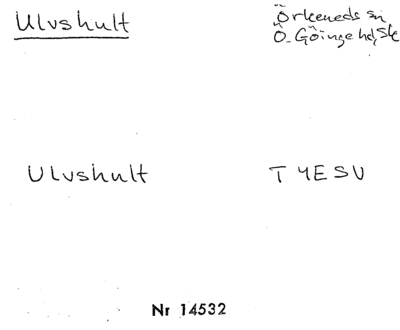 Ulvshult
Örkeneds sn
Ö. Göinge hd, Sk
Ulvshult
T 4E SV
Nr 14532